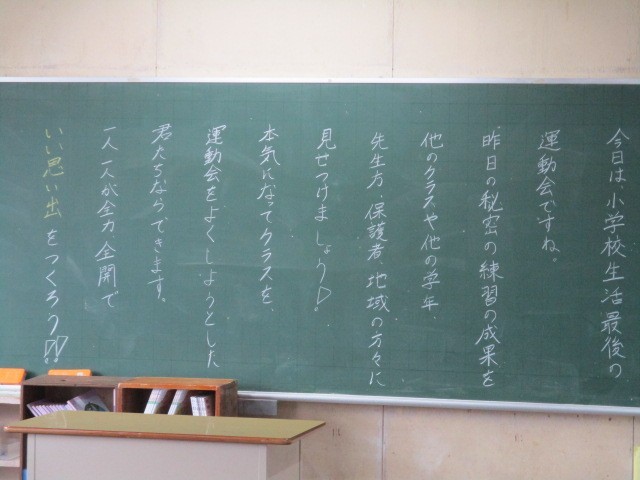 今日は、小学校生活最後の
運動会ですね。
昨日の秘密の練習の成果を
他のクラスや他の学年
先生方、保護者、地域の方々に
見せつけましょう!
本気になってクラスを、
運動会をよくしようとした
君たちならできます。
一人一人が全力全開で
いい思い出をつくろう!!